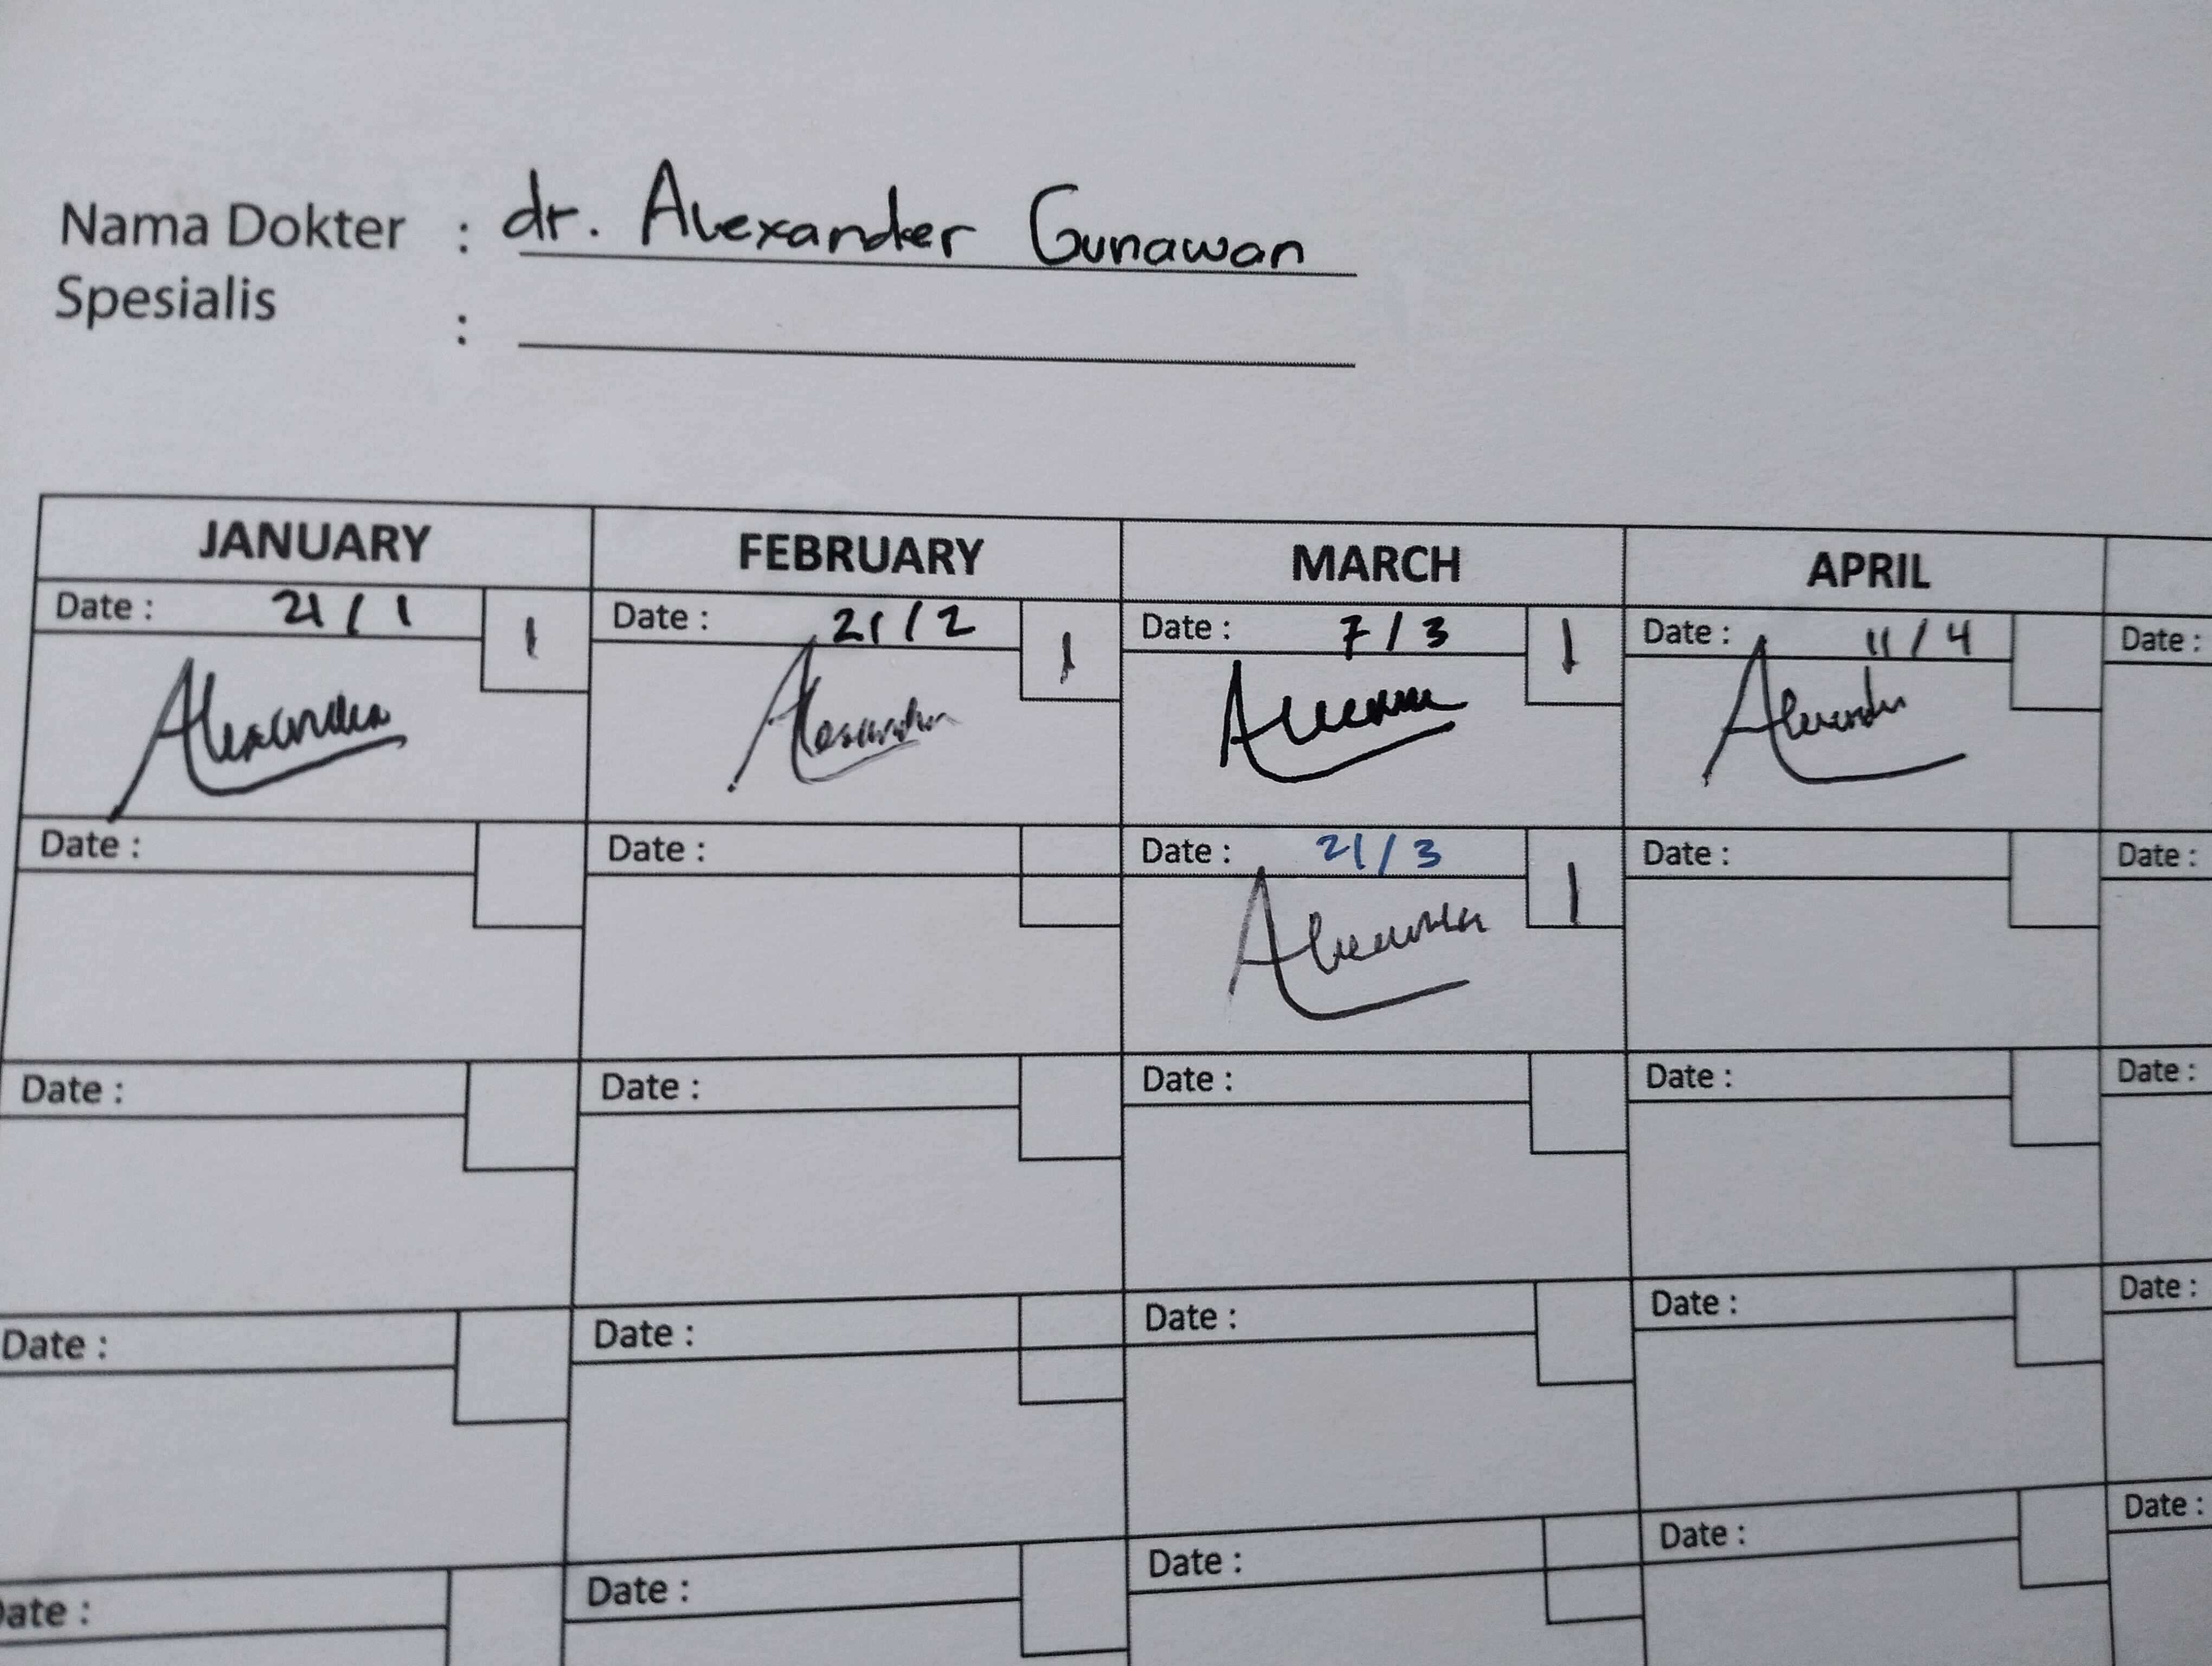 Nama Dokter : dr. Alexander Gunawan
Spesialis :
JANUARY FEBRUARY MARCH APRIL
Date : 21 / 1 1 Date : 21 / 2 1 Date : 7 / 3 1 Date : 11 / 4 Date :
Alexander Alexander Alexander
Date : Date : Date : 21 / 3 1 Date : Date :
Date : Date : Date : Date : Date :
Date : Date : Date : Date : Date :
Date : Date : Date : Date : Date :